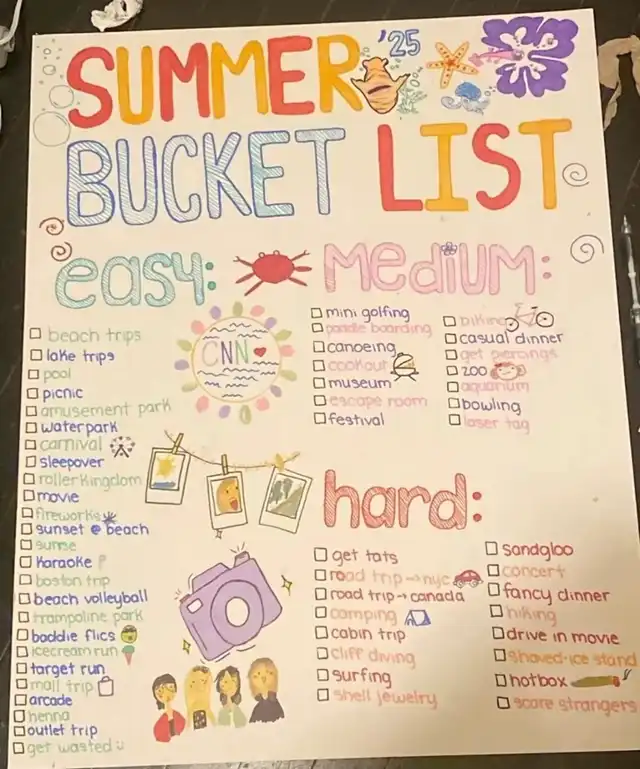 SUMMER '25
BUCKET LIST
easy:
beach trips
lake trips
pool
picnic
amusement park
waterpark
carnival
sleepover
rollerkingdom
movie
fireworks
sunset @ beach
sunrise
karaoke
boston trip
beach volleyball
trampoline park
baddie flics
icecream run
target run
mall trip
arcade
henna
outlet trip
get wasted
CNN
MEDIUM:
mini golfing
paddle boarding
canoeing
cookout
museum
escape room
festival
biking
casual dinner
get piercings
zoo
aquarium
bowling
laser tag
hard:
get tats
road trip → nyc
road trip → canada
camping
cabin trip
cliff diving
surfing
shell jewelry
sandgloo
concert
fancy dinner
hiking
drive in movie
shaved-ice stand
hotbox
scare strangers